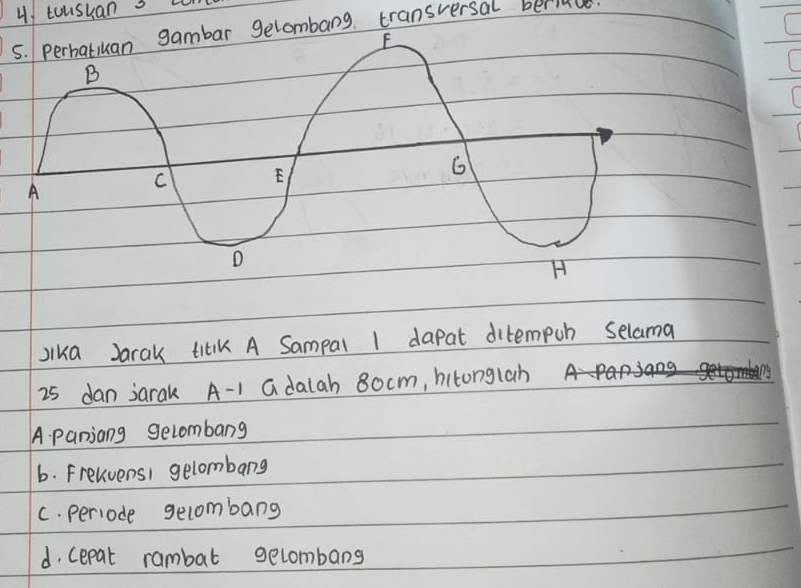 4. tuliskan 3
5. Perhatikan gambar gelombang. transversal berikut.
B
F
A
C
E
G
D
H
Jika Jarak titik A Sampai I dapat ditempuh Selama
25 dan jarak A-I adalah 80cm, hitunglah A panjang gelombang
A. Panjang gelombang
b. Frekuensi gelombang
c. Periode gelombang
d. Cepat rambat gelombang